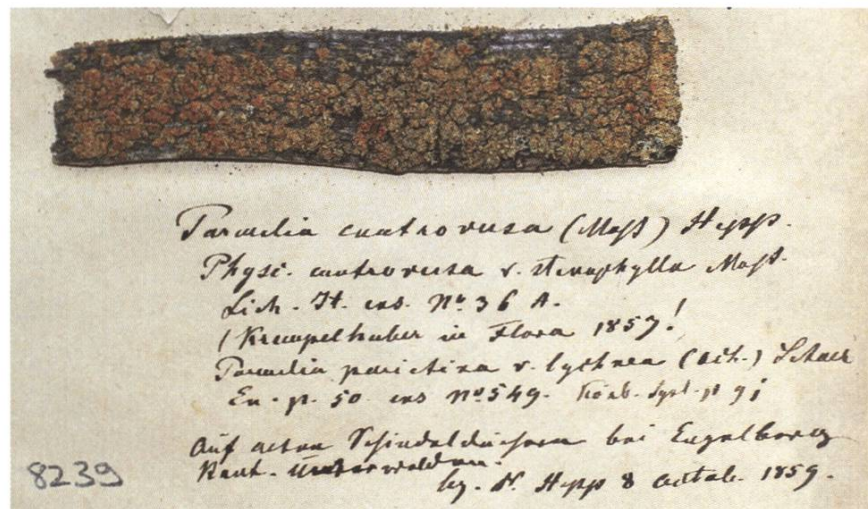 Parmelia controversa (Mass) Hepp.
Physc. controversa v. stenophylla Mass.
Lich. It. exs. No. 36 A.
(Krempelhuber in Flora 1857!
Parmelia parietina v. lychnea (Ach.) Schaer
En. p. 50. exs No. 549. Körb. Syst. p 91
Auf alten Schindeldächern bei Engelberg
Kant. Unterwalden.
lg. Hepp 8 octob. 1859.
8239